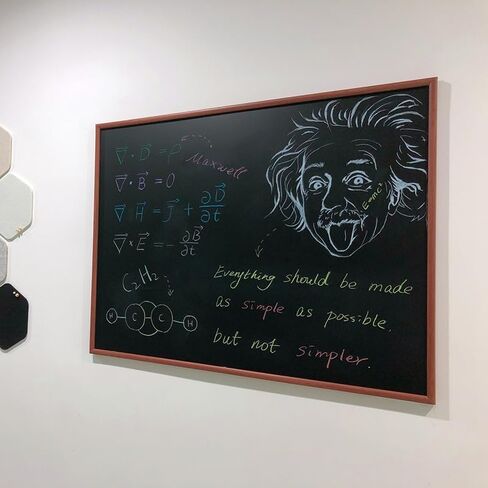 ∇⃗ · D⃗ = ρ
Maxwell
∇⃗ · B⃗ = 0
∇⃗ H⃗ = J⃗ + ∂D⃗/∂t
∇⃗ × E⃗ = - ∂B⃗/∂t
C₂H₂
H C C H
Everything should be made
as simple as possible.
but not simpler.